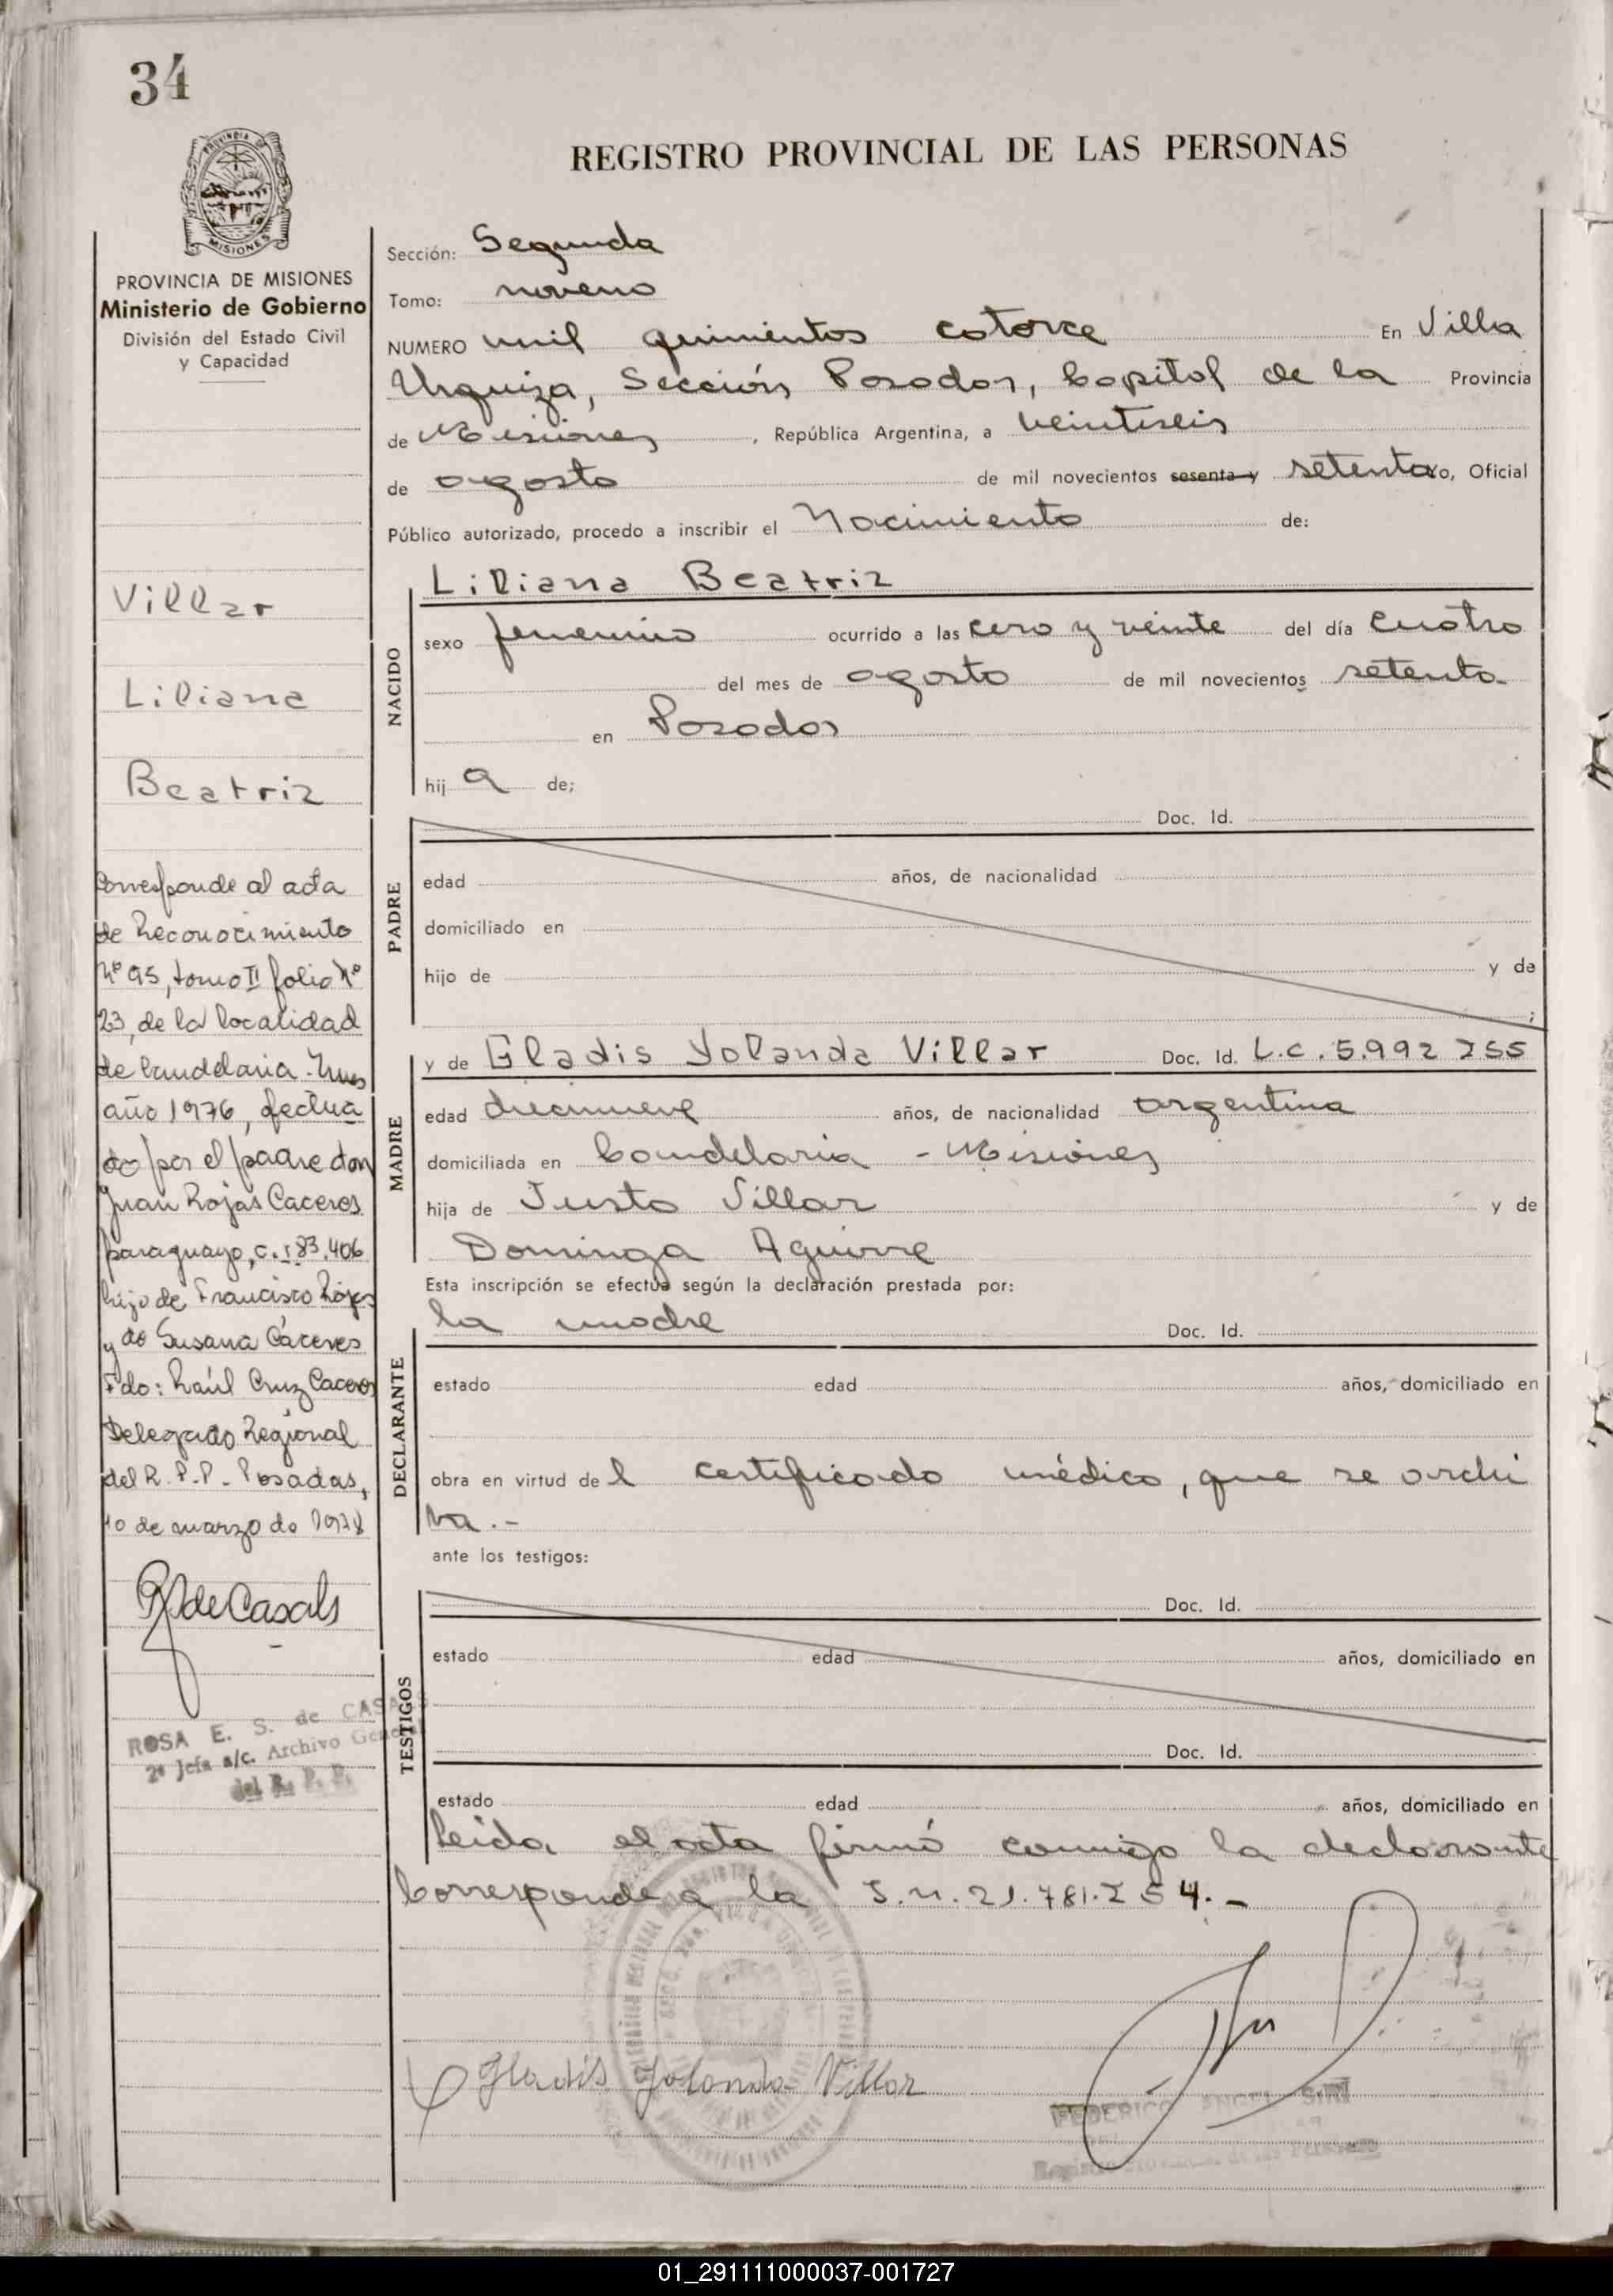 34
PROVINCIA DE
MISIONES
REGISTRO PROVINCIAL DE LAS PERSONAS
PROVINCIA DE MISIONES
Ministerio de Gobierno
División del Estado Civil
y Capacidad
Villar
Liliana
Beatriz
Corresponde al acta
de Reconocimiento
Nº 95, tomo II folio Nº
23, de la localidad
de Candelaria - Mnes
año 1976, efectua
do por el padre don
Juan Rojas Caceres
paraguayo, c.i 83.406
hijo de Francisco Rojas
y de Susana Cáceres
Fdo: Raúl Cruz Caceres
Delegado Regional
del R.P.P. - Posadas,
10 de marzo de 1978
R de Casals
ROSA E. S. de CASALS
2ª Jefa a/c. Archivo General
del R. P. P.
Sección: Segunda
Tomo: noveno
NUMERO mil quinientos catorce En Villa
Urquiza, Sección Posadas, Capital de la Provincia
de Misiones, República Argentina, a veintiseis
de agosto de mil novecientos sesenta y setenta yo, Oficial
Público autorizado, procedo a inscribir el Nacimiento de:
NACIDO
Liliana Beatriz
sexo femenino ocurrido a las cero y veinte del día cuatro
del mes de agosto de mil novecientos setenta
en Posadas
hij a de;
PADRE
Doc. Id.
edad años, de nacionalidad
domiciliado en
hijo de y de
;
MADRE
y de Gladis Yolanda Villar Doc. Id. L.C. 5.992 255
edad diecinueve años, de nacionalidad argentina
domiciliada en Candelaria - Misiones
hija de Justo Villar y de
Dominga Aguirre
Esta inscripción se efectúa según la declaración prestada por:
DECLARANTE
la madre Doc. Id.
estado edad años, domiciliado en
obra en virtud de l certificado médico, que se archi
va.-
ante los testigos:
TESTIGOS
Doc. Id.
estado edad años, domiciliado en
Doc. Id.
estado edad años, domiciliado en
Leída el acta firmó conmigo la declarante
Corresponde a la I.M. 21.781.254.-
Gladis Yolanda Villar
FEDERICO ANGEL
01_291111000037-001727